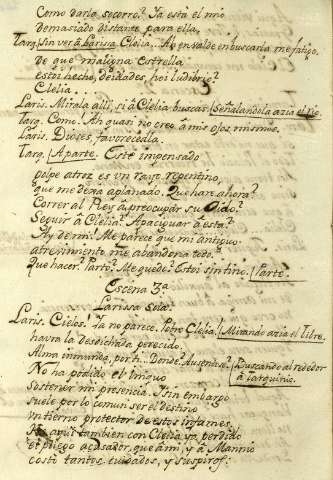 Como darla socorro? Ya está el rio
demasiado distante para ella.
Tarq. Sin ver á Larisa Clelia... Ah en valde en buscarla me fatigo.
de que maligna estrella
estoi hecho, deidades, hoi ludibrio?
Clelia...
Laris. Mirala alli, si á Clelia buscas. Señalandola azia el rio.
Tarq. Como. Ah quasi no creo à mis ojos mismos.
Laris. Dioces, favorecedla.
Tarq. Aparte. Este impensado
golpe atroz es un rayo repentino,
que me dexa aplanado. Que haré ahora?
Correr al Rey à preocupar su oido?
Seguir à Clelia? Apaciguar à esta?
Ay de mi! Me parece que mi antiguo
atrevimiento me abandona todo.
Que hacer? Parto? Me quedo? Estoi sin tino. Parte.
Escena 3ª
Larissa Sola.
Laris. Cielos! Ya no parece. Pobre Clelia! Mirando azia el Tibre.
havra la desdichada perecido.
Alma inmunda, por ti. Donde? Ausente? Buscando al rededor
à tarquinio.
No ha podido el iniquo
sostener mi presencia. Y sin embargo
suele por lo comun ser el destino
un tierno protector de estos infames.
He aqui tambien con Clelia ya perdido
el pliego acusador, que à mi, y à Mannio
costó tantos cuidados, y suspiros.